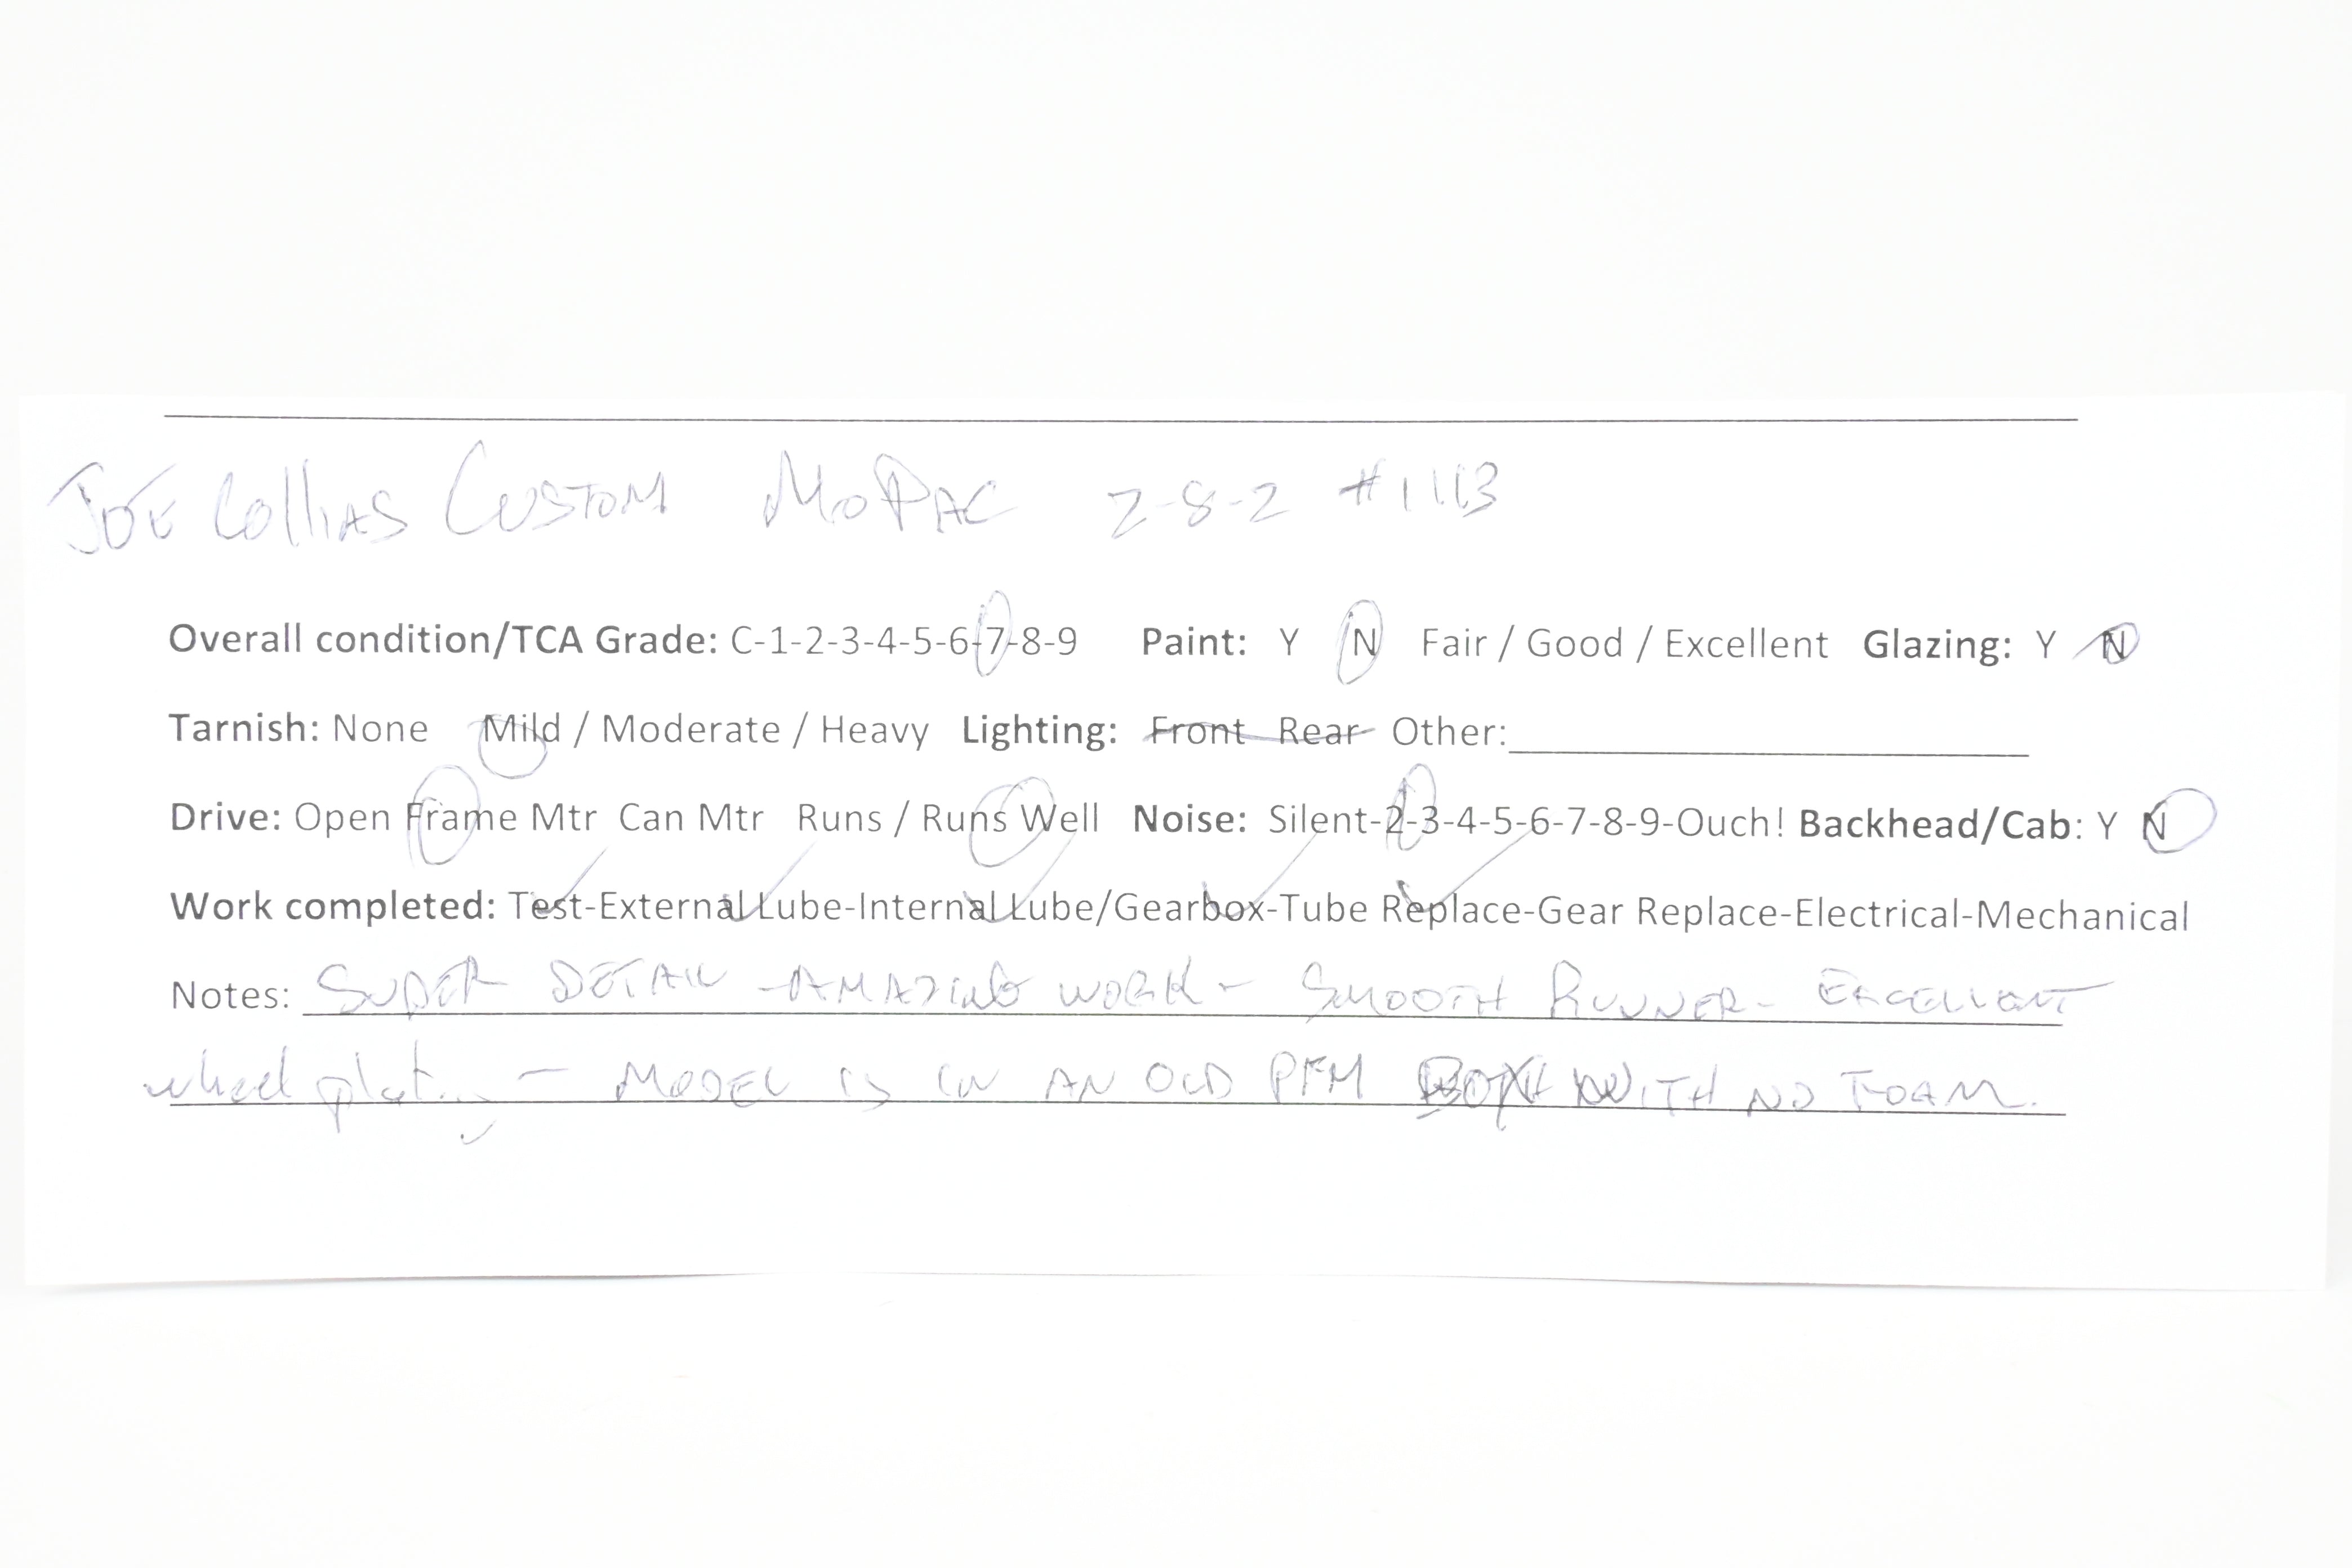 JOE COLLIAS CUSTOM MOPAC 2-8-2 #1113
Overall condition/TCA Grade: C-1-2-3-4-5-6-7-8-9 Paint: Y N Fair / Good / Excellent Glazing: Y N
Tarnish: None Mild / Moderate / Heavy Lighting: Front Rear Other:
Drive: Open Frame Mtr Can Mtr Runs / Runs Well Noise: Silent-2-3-4-5-6-7-8-9-Ouch! Backhead/Cab: Y N
Work completed: Test-External Lube-Internal Lube/Gearbox-Tube Replace-Gear Replace-Electrical-Mechanical
Notes: SUPER DETAIL - AMAZING WORK - SMOOTH RUNNER - EXCELLENT
wheel plating - MODEL IS IN AN OLD PFM BOX WITH NO FOAM.